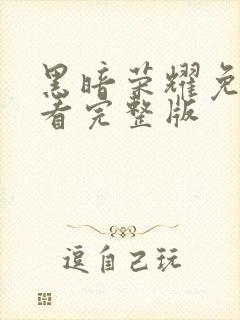 黑暗荣耀免
看完整版
逗自己玩